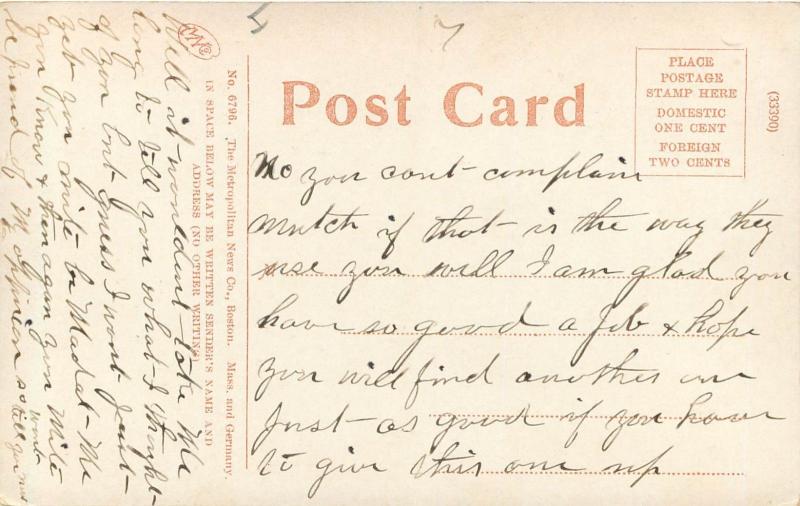 Post Card
PLACE
POSTAGE
STAMP HERE
DOMESTIC
ONE CENT
FOREIGN
TWO CENTS
(33390)
No you cant complain
mutch if that is the way they
use you well I am glad you
have so good a job & hope
you will find another one
just as good if you have
to give this one up
No. 6796. The Metropolitan News Co., Boston. Mass. and Germany.
IN SPACE BELOW MAY BE WRITTEN SENDER'S NAME AND
ADDRESS (NO OTHER WRITING)
Well it wouldent take Me
long to tell you what I thought
of you but guess I wont just
yet you mite be Mad at Me
you know & then agan you Mite
wont
be proud of M oppinion so till you